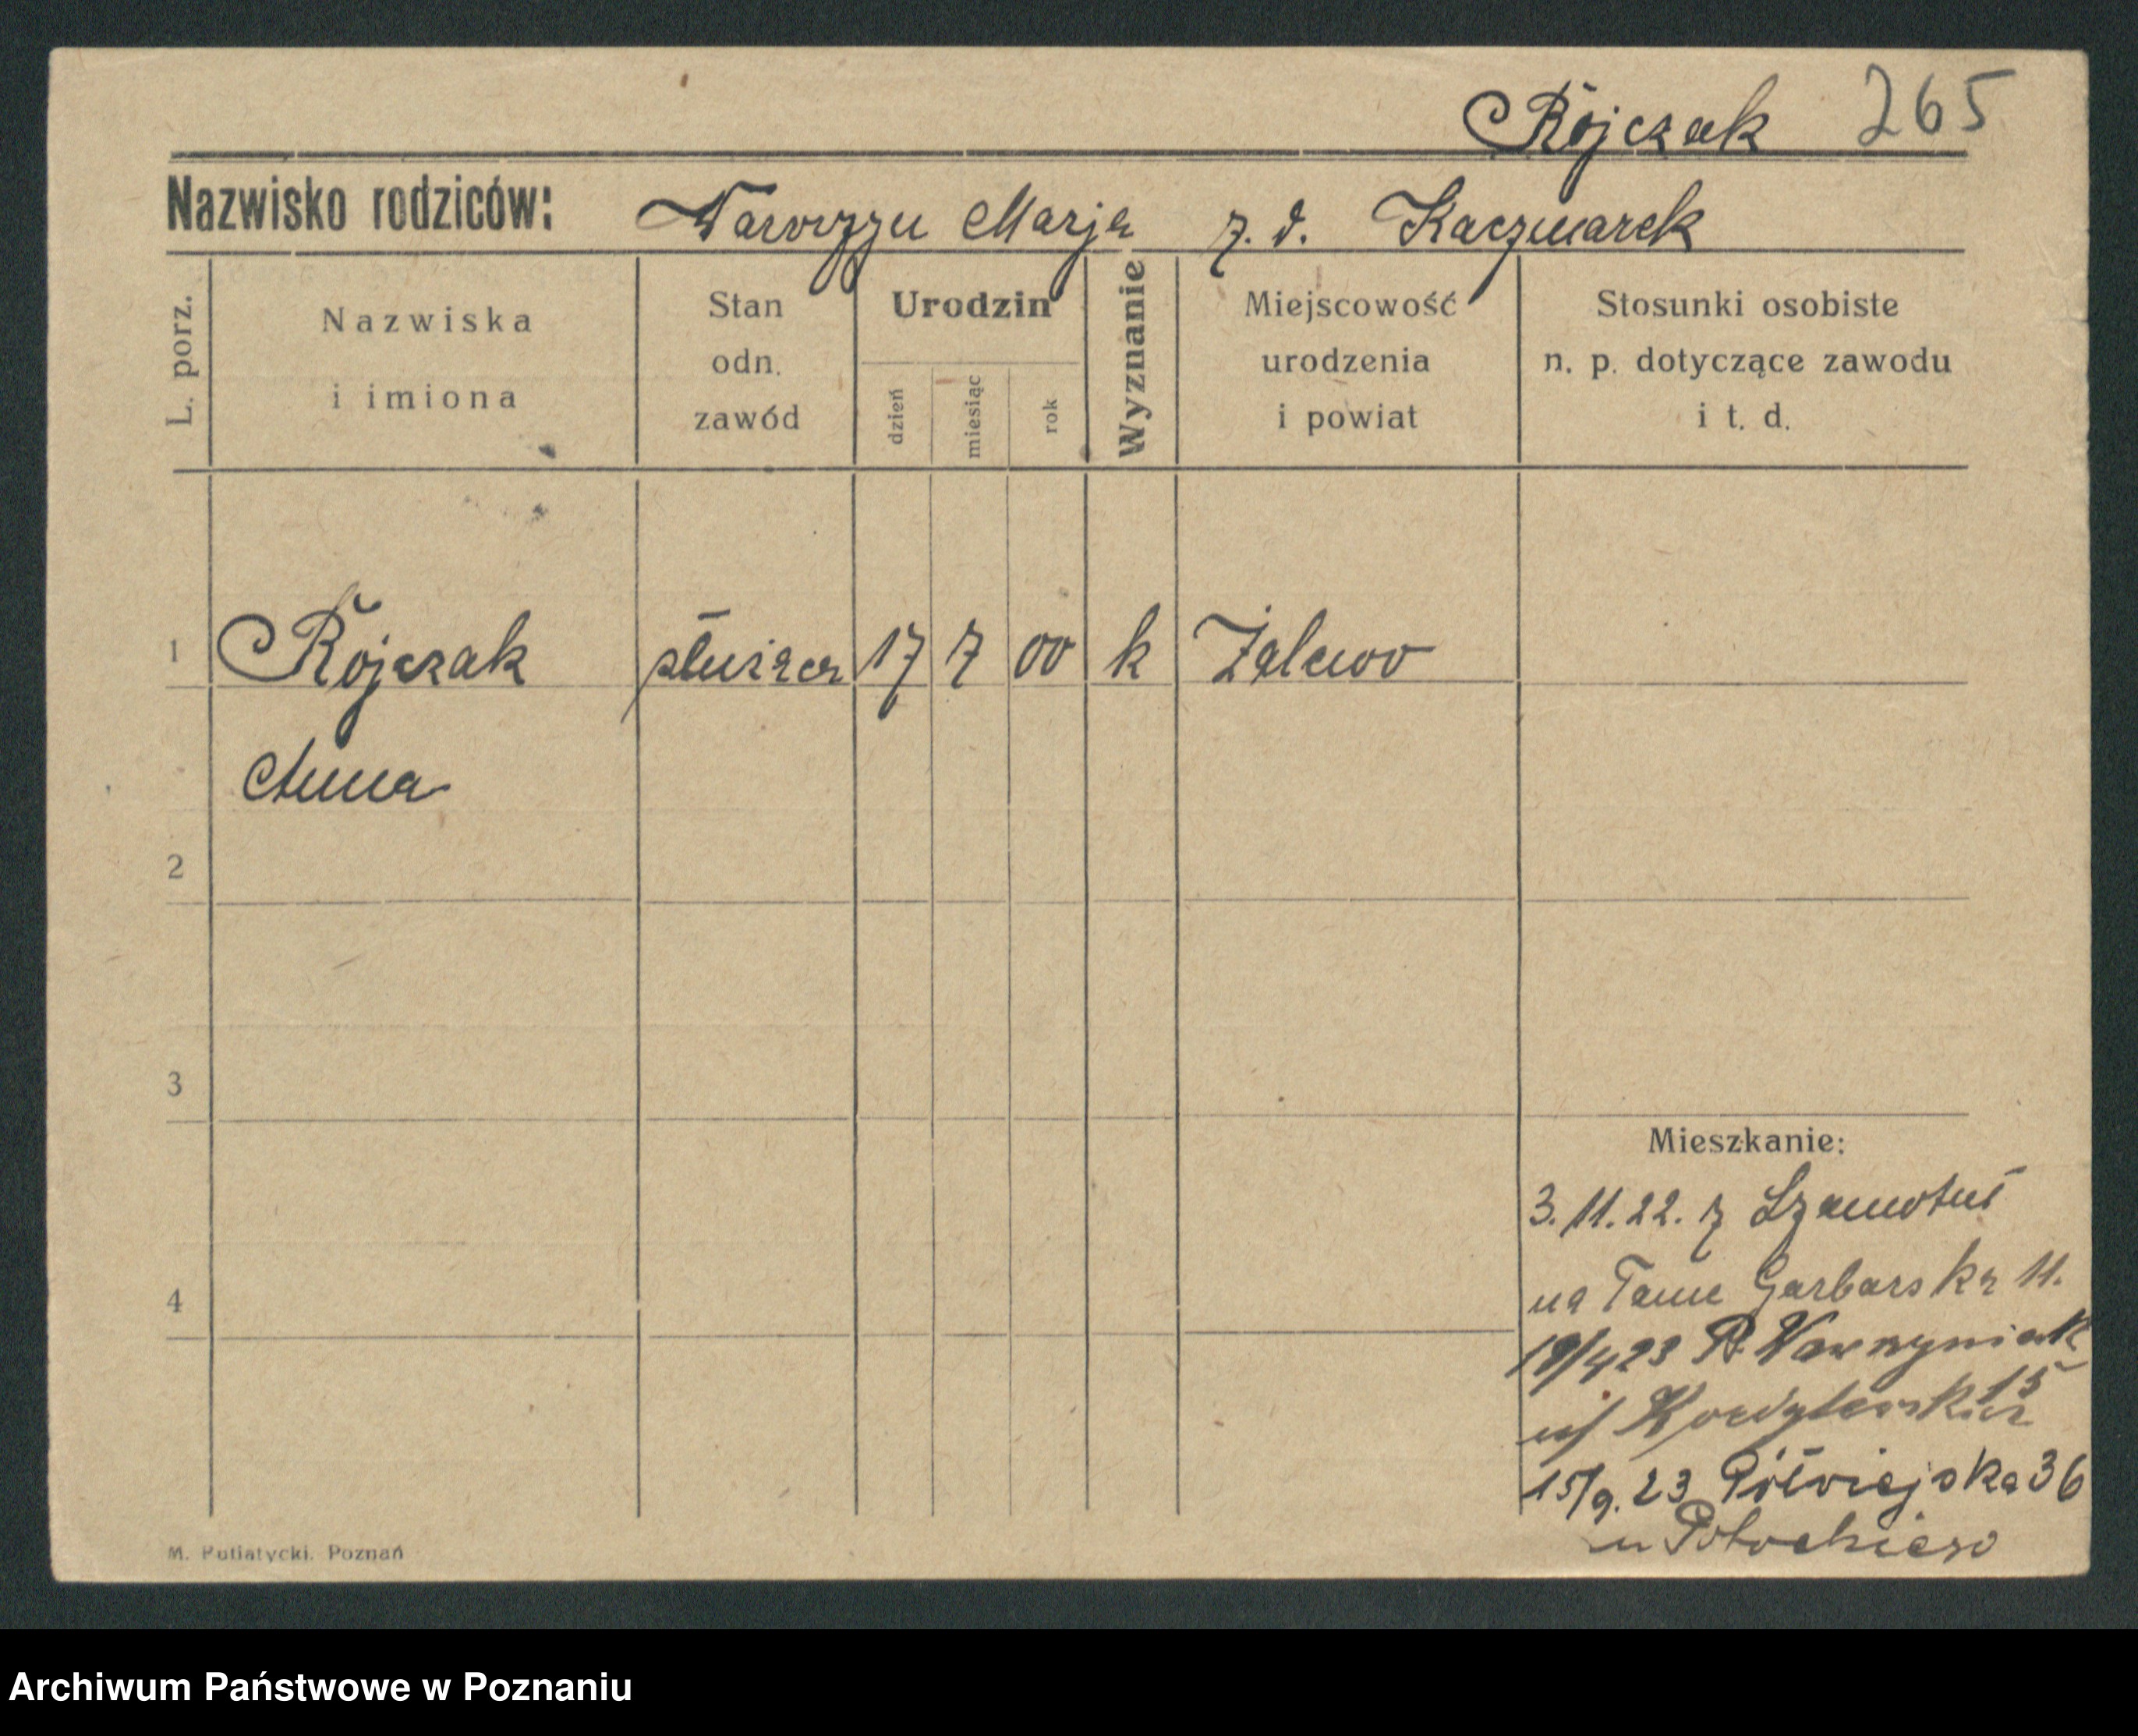 Rójczak 265
Nazwisko rodziców: Wawrzyn Marja z. d. Kaczmarek
L. porz.
Nazwiska
i imiona
Stan
odn.
zawód
Urodzin
dzień
miesiąc
rok
Wyznanie
Miejscowość
urodzenia
i powiat
Stosunki osobiste
n. p. dotyczące zawodu
i t. d.
1 Rójczak służąca 17 7 00 k Żalewo
Anna
2
3
Mieszkanie:
3. 11. 22. z Szamotuł
na Tame Garbarska 11.
4
19/4 23 P. Wawrzyniak
15
15/9. 23 Półwiejska 36
u Potockiego
M. Putiatycki. Poznań
Archiwum Państwowe w Poznaniu